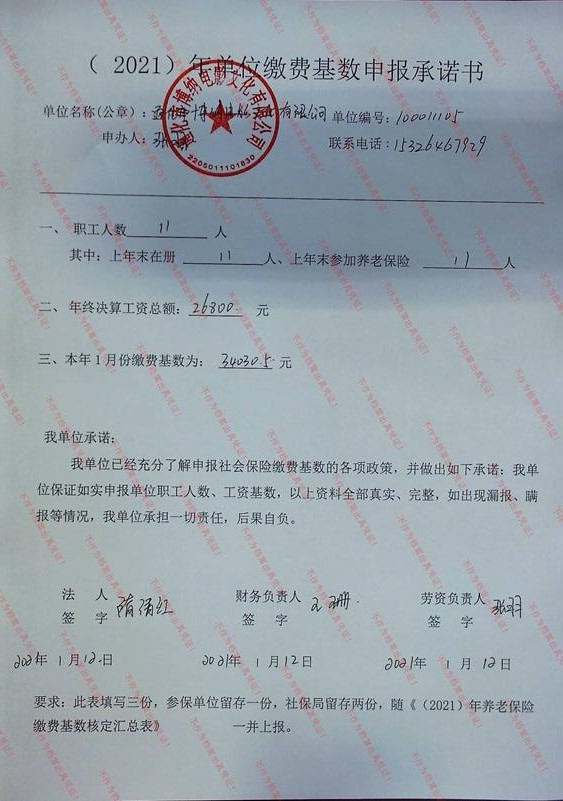 （ 2021）年单位缴费基数申报承诺书
单位名称(公章)：通化市博纳电影文化有限公司 单位编号：100011105
通化市博纳电影文化有限公司
2205011101830
申办人：张 联系电话：15326467929
一、 职工人数 11 人
其中：上年末在册 11 人、上年末参加养老保险 11 人
二、 年终决算工资总额：26800. 元
三、本年 1 月份缴费基数为： 34030.5 元
我单位承诺：
我单位已经充分了解申报社会保险缴费基数的各项政策，并做出如下承诺：我单
位保证如实申报单位职工人数、工资基数，以上资料全部真实、完整，如出现漏报、瞒
报等情况，我单位承担一切责任，后果自负。
法 人 财务负责人 劳资负责人 张羽
签 字 签 字 签 字
2021年 1 月 12.日 2021年 1 月 12 日 2021年 1 月 12 日
要求：此表填写三份，参保单位留存一份，社保局留存两份，随《（2021）年养老保险
缴费基数核定汇总表》 一并上报。